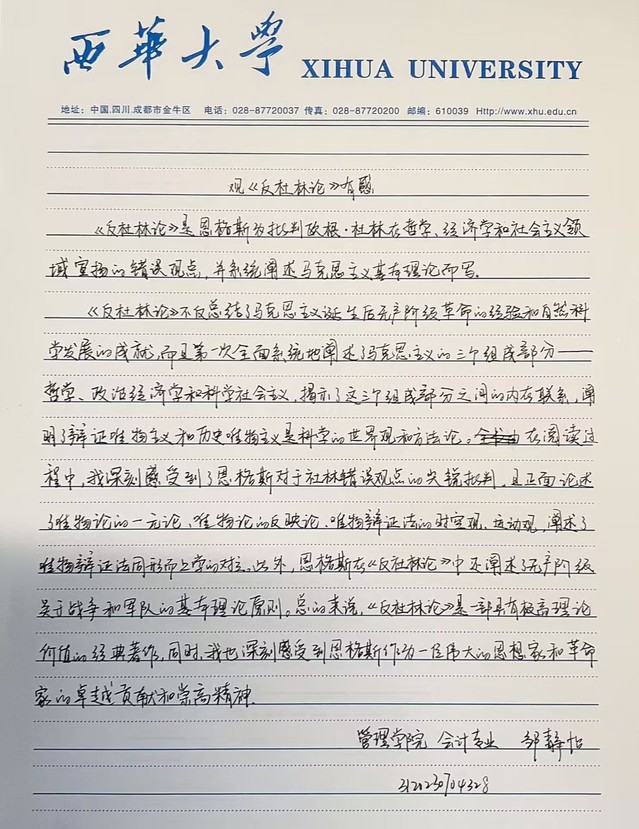 西華大學 XIHUA UNIVERSITY
地址：中国.四川.成都市金牛区 电话：028-87720037 传真：028-87720200 邮编：610039 Http://www.xhu.edu.cn
观《反杜林论》有感
《反杜林论》是恩格斯为批判欧根·杜林在哲学、经济学和社会主义领
域宣扬的错误观点，并系统阐述马克思主义基本理论而写。
《反杜林论》不仅总结了马克思主义诞生后无产阶级革命的经验和自然科
学发展的成就，而且第一次全面系统地阐述了马克思主义的三个组成部分——
哲学、政治经济学和科学社会主义，揭示了这三个组成部分之间的内在联系，阐
明了辩证唯物主义和历史唯物主义是科学的世界观和方法论。在阅读过
程中，我深刻感受到了恩格斯对于杜林错误观点的尖锐批判，且正面论述
了唯物论的一元论、唯物论的反映论、唯物辩证法的时空观、运动观，阐述了
唯物辩证法同形而上学的对立。此外，恩格斯在《反杜林论》中还阐述了无产阶级
关于战争和军队的基本理论原则。总的来说，《反杜林论》是一部具有极高理论
价值的经典著作，同时，我也深刻感受到恩格斯作为一位伟大的思想家和革命
家的卓越贡献和崇高精神。
管理学院 会计专业 邹静怡